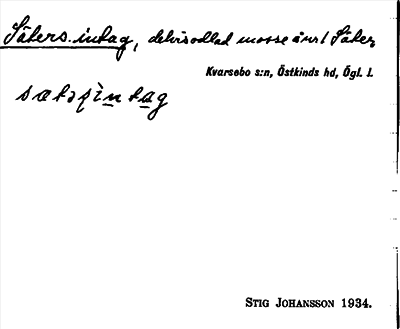 Säters intag, delvis odlad mosse i nrl Säter
Kvarsebo s:n, Östkinds hd, Ögl. l.
STIG JOHANSSON 1934.